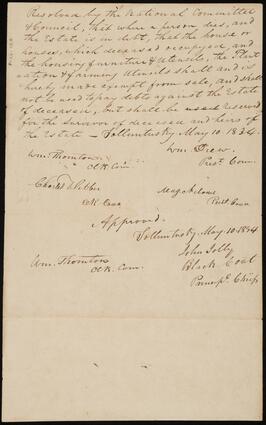 Resolved by the National Committee
& Council, that when a person dies, and
the Estate is in debt, that the house or
houses, which deceased occupyed, and
the housing furniture & Utensils, the Plant
ation & farming Utensils shall and is
hereby made exempt from sale, and shall
not be used to pay debts against the Estate
of deceased, but shall be used & reserved
for the Survivor of deceased and heirs of
the Estate — Tolluntusky May 10. 1834.
Wm. Drew.
Wm. Thornton Prest. Com.
Clk Com.
Charles
Clk Coun
Prest. Coun
Approved.
Tolluntusky, May, 10. 1834
John Jolly
Wm. Thornton Black Coat
Clk. Com. Principl. Chiefs